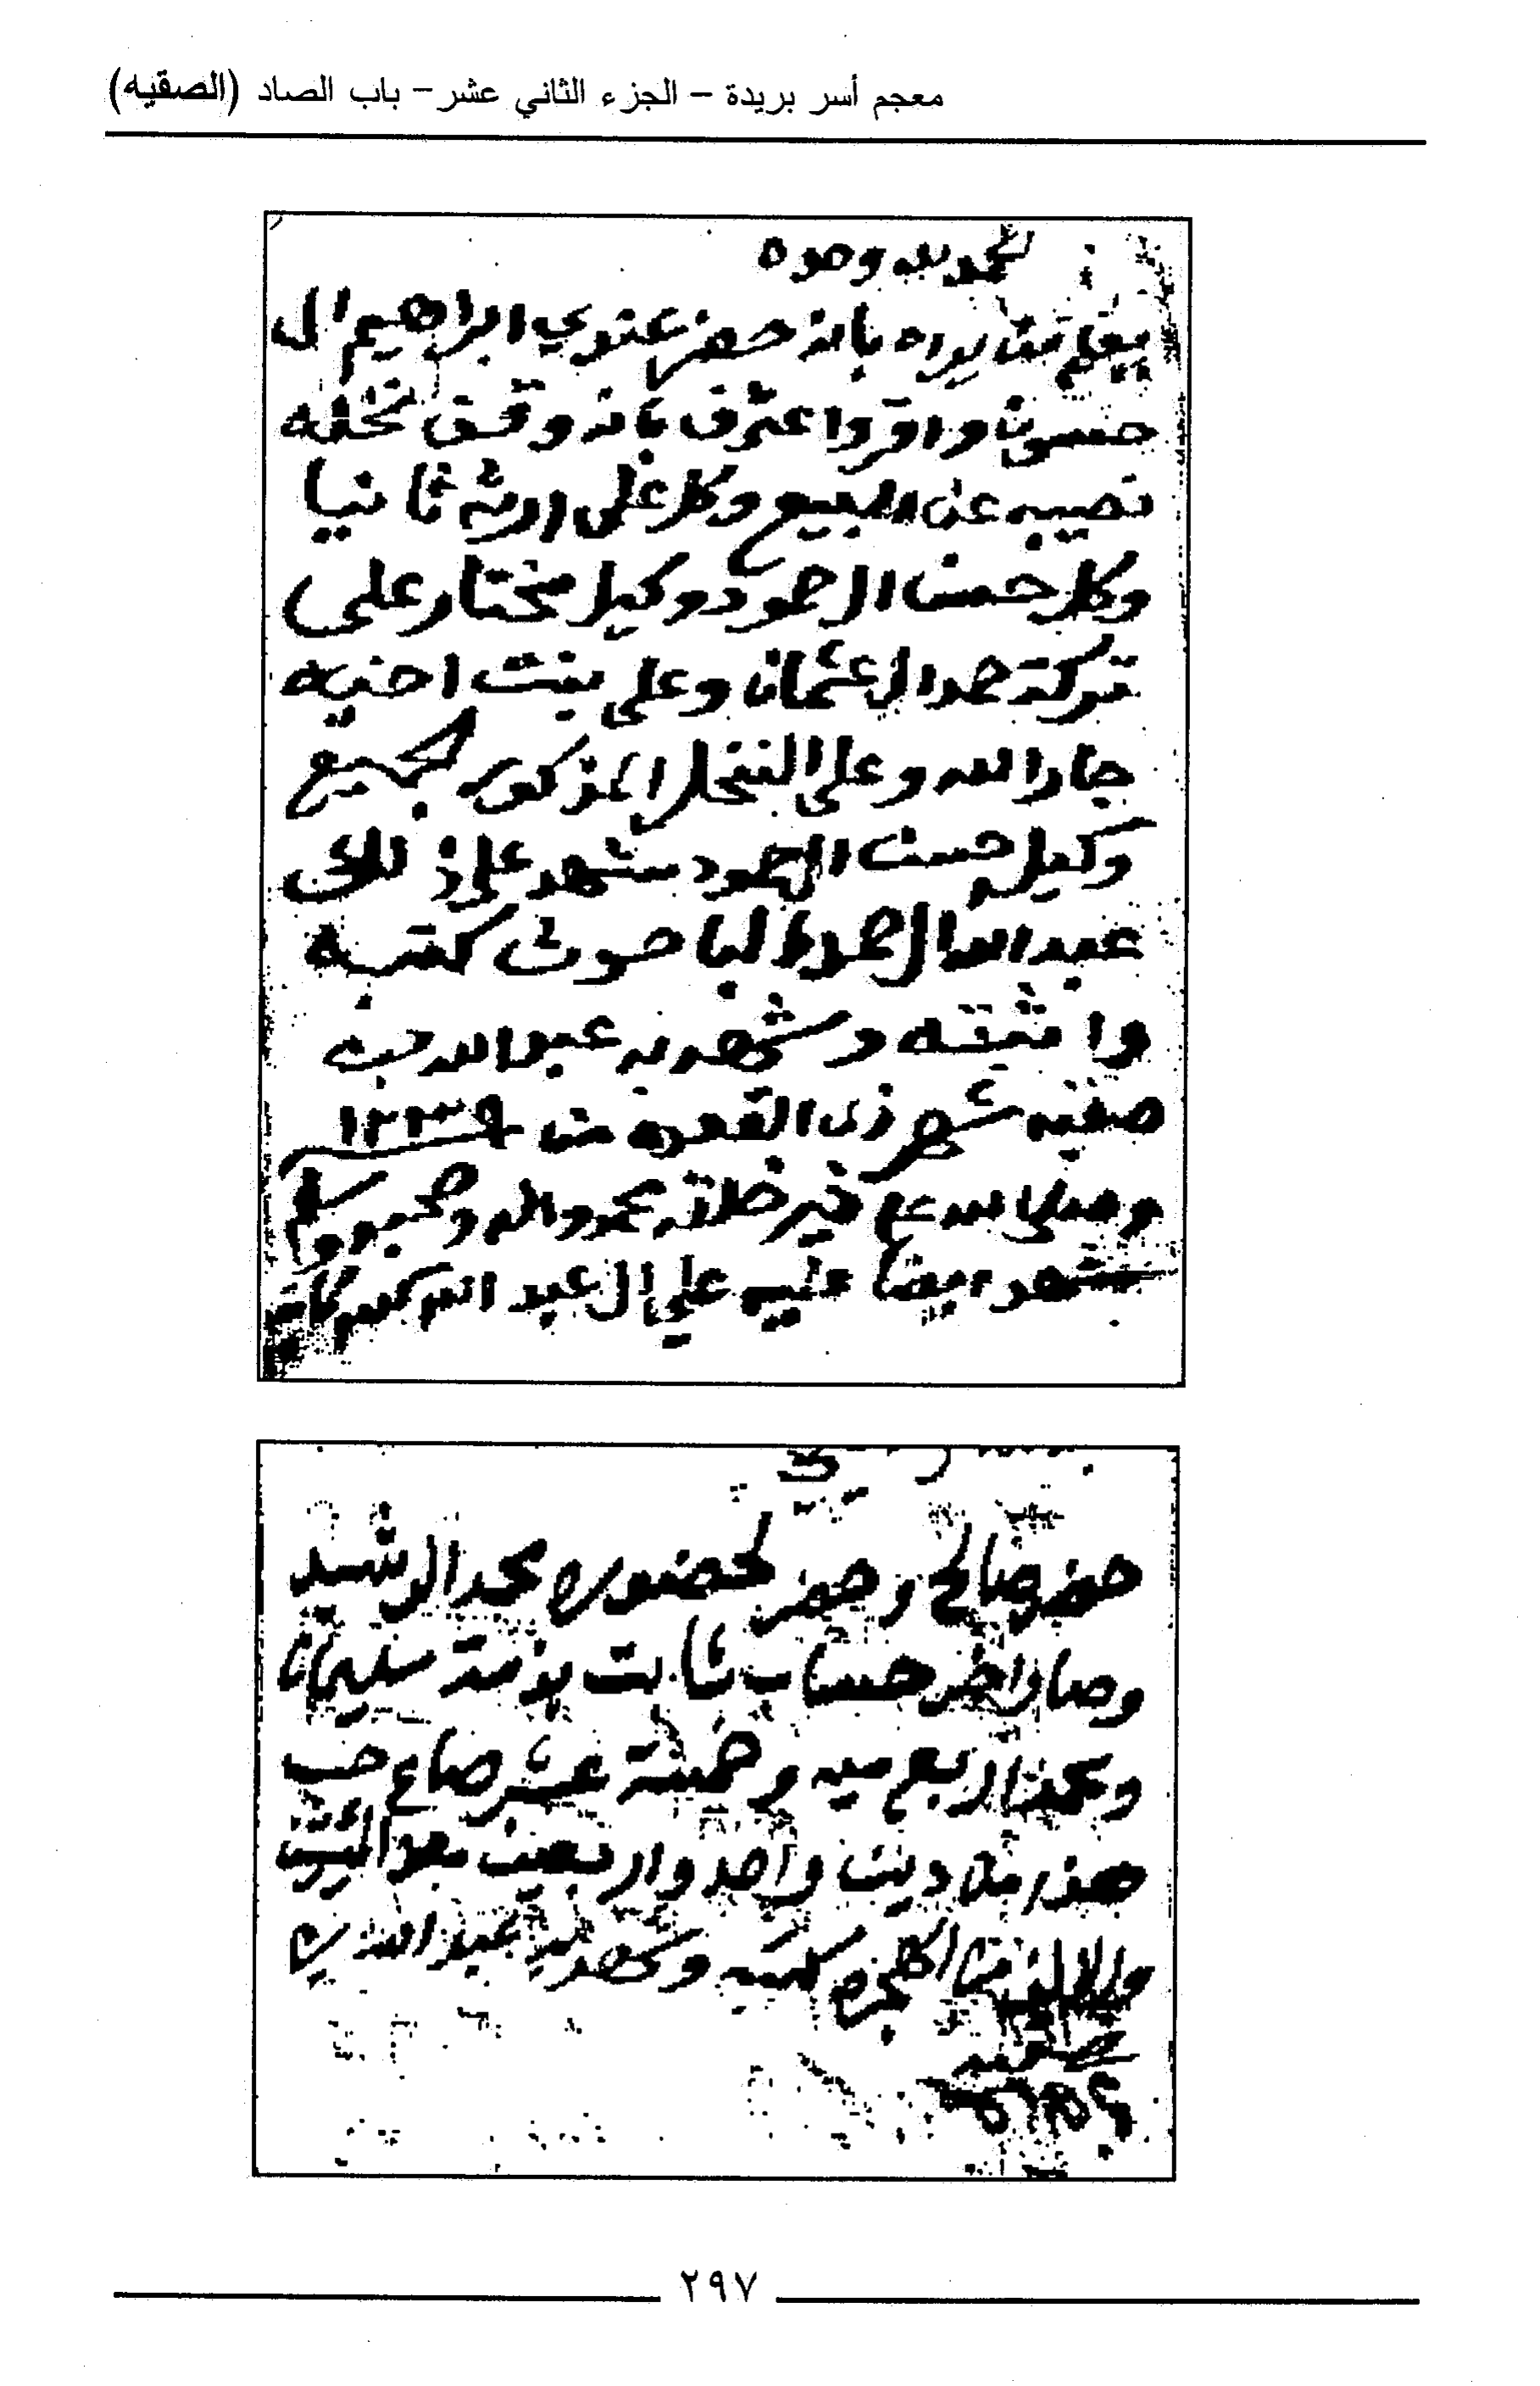 معجم أسر بريدة – الجزء الثاني عشر – باب الصاد (الصقيه)
الحمد لله وحده
يعلم من يراه بانه حضر عندي ابراهيم ال
حسون واقر واعترف بانه وقف نخله
نصيبه عن البيع وكل على ارثه ثانيا
وكل حسن ال حمود وكيل مختار على
تركة حمد ال عثمان وعلى بنت اخيه
جار الله وعلى النخل المذكور الجميع
وكيل حسن ال حمود شهد على ذلك
عبد الله ال حمد الباحوث كتبه
واثبته وشهد به عبد الله بن
صقيه شهر ذي القعدة من ١٢٣٩
وصلى الله على خير خلقه محمد واله وصحبه وسلم
شهد ايضا عليه علي ال عبد الله
حضر صالح وحضر لحضوره محمد الرشيد
وصار اخر حساب ثابت بذمة سليمان
ومحمد اربع ميه وخمسة عشر صاع حب
هذا من دين واحد واربعين بعد الميتين
والالف من الهجره كتبه وشهد به عبد الله بن
صقيه
٢٩٧